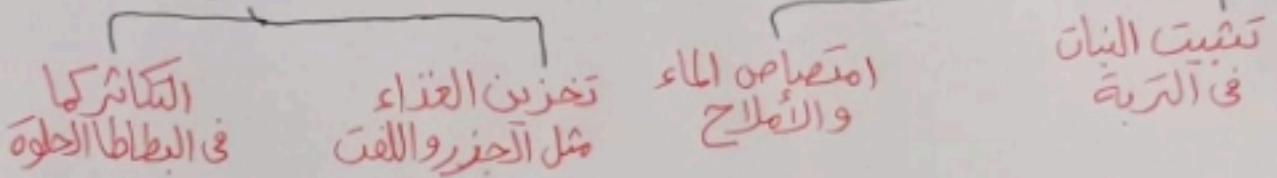 تثبيت النبات
فى التربة
امتصاص الماء
والأملاح
تخزين الغذاء
مثل الجزر واللفت
التكاثر كما
فى البطاطا الحلوة